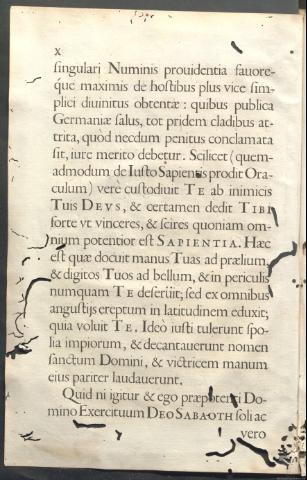 x
singulari Numinis prouidentia fauore-
q́ue maximis de hostibus plus vice sim-
plici diuinitus obtentæ: quibus publica
Germaniæ salus, tot pridem cladibus at-
trita, quòd necdum penitus conclamata
sit, iure merito debetur. Scilicet (quem-
admodum de Iusto Sapientis prodit Ora-
culum) verè custodiuit TE ab inimicis
Tuis DEVS, & certamen dedit TIBI
forte vt vinceres, & scires quoniam om-
nium potentior est SAPIENTIA. Hæc
est quæ docuit manus Tuas ad prælium,
& digitos Tuos ad bellum, & in periculis
numquam TE deseruit; sed ex omnibus
angustijs ereptum in latitudinem eduxit;
quia voluit TE. Ideò iusti tulerunt spo-
lia impiorum, & decantauerunt nomen
sanctum Domini, & victricem manum
eius pariter laudauerunt.
Quid ni igitur & ego præpotenti Do-
mino Exercituum DEO SABAOTH soli ac
vero